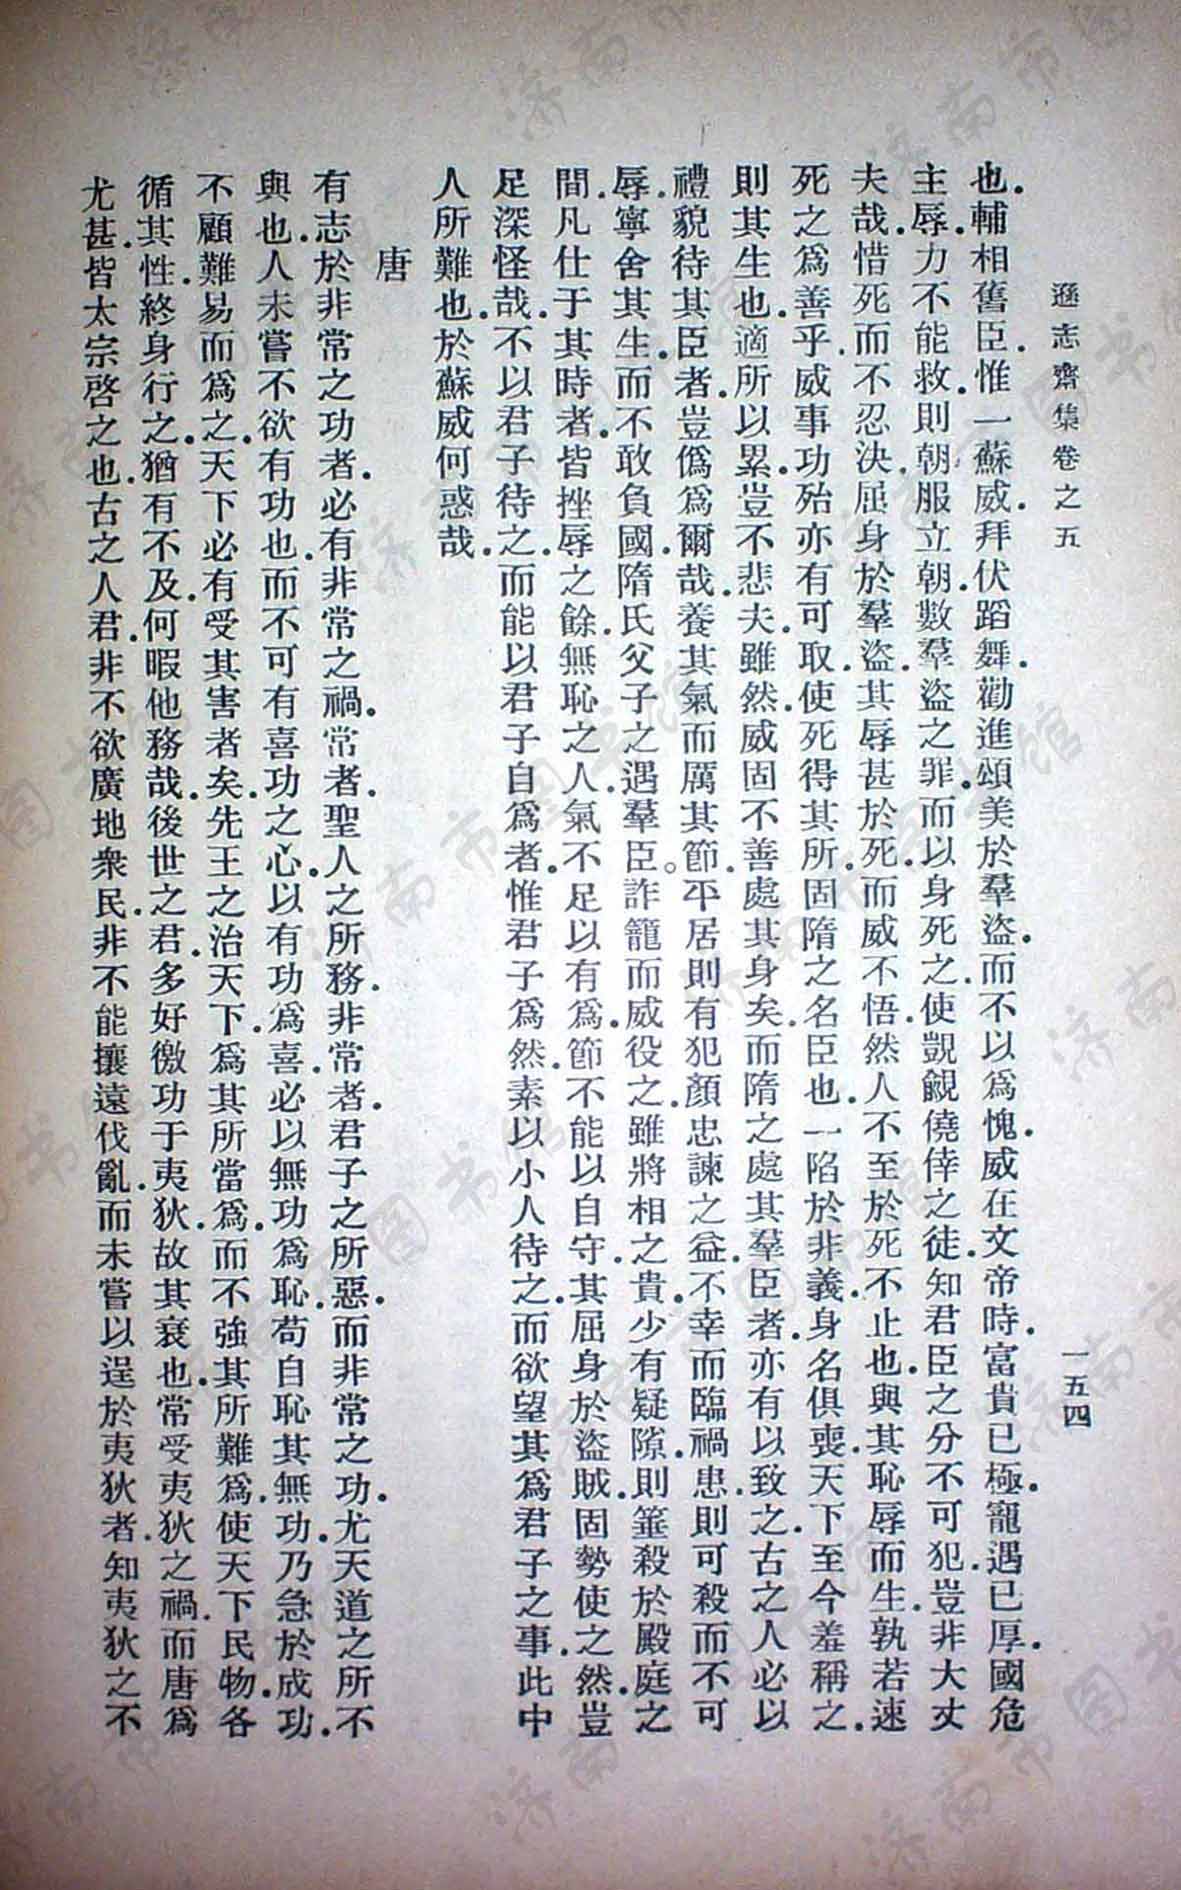 遜志齋集卷之五
一五四
也.輔相舊臣.惟一蘇威.拜伏蹈舞.勸進頌美於羣盜.而不以爲愧.威在文帝時.富貴已極.寵遇已厚.國危
主辱.力不能救.則朝服立朝.數羣盜之罪而以身死之.使覬覦僥倖之徒.知君臣之分不可犯.豈非大丈
夫哉.惜死而不忍決.屈身於羣盜.其辱甚於死.而威不悟.然人不至於死不止也.與其恥辱而生.孰若速
死之爲善乎.威事功殆亦有可取.使死得其所.固隋之名臣也.一陷於非義.身名俱喪.天下至今羞稱之.
則其生也.適所以累.豈不悲夫.雖然.威固不善處其身矣.而隋之處其羣臣者.亦有以致之.古之人必以
禮貌待其臣者.豈僞爲爾哉.養其氣而厲其節.平居則有犯顏忠諫之益.不幸而臨禍患.則可殺而不可
辱.寧舍其生.而不敢負國.隋氏父子之遇羣臣。詐籠而威役之.雖將相之貴.少有疑隙.則箠殺於殿庭之
間.凡仕于其時者.皆挫辱之餘.無恥之人.氣不足以有爲.節不能以自守.其屈身於盜賊.固勢使之然.豈
足深怪哉.不以君子待之.而能以君子自爲者.惟君子爲然.素以小人待之.而欲望其爲君子之事.此中
人所難也.於蘇威何惑哉.
唐
有志於非常之功者.必有非常之禍.常者.聖人之所務.非常者.君子之所惡.而非常之功.尤天道之所不
與也.人未嘗不欲有功也.而不可有喜功之心.以有功爲喜.必以無功爲恥.苟自恥其無功.乃急於成功.
不顧難易而爲之.天下必有受其害者矣.先王之治天下.爲其所當爲.而不強其所難爲.使天下民物.各
循其性.終身行之.猶有不及.何暇他務哉.後世之君.多好徼功于夷狄.故其衰也.常受夷狄之禍.而唐爲
尤甚.皆太宗啓之也.古之人君.非不欲廣地衆民.非不能攘遠伐亂.而未嘗以逞於夷狄者.知夷狄之不